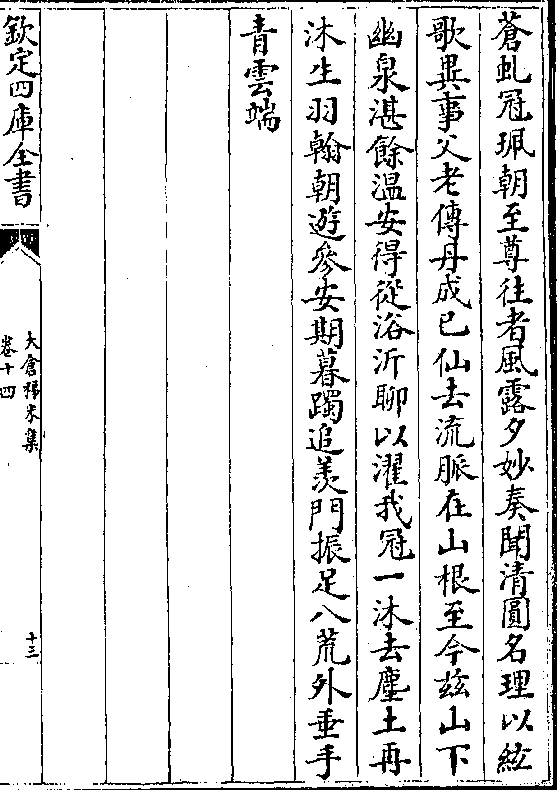 蒼虬冠珮朝至尊往者風露夕妙奏聞清圓名理以絃
歌異事父老傳丹成已仙去流脈在山根至今兹山下
幽泉湛餘温安得從浴沂聊以濯我冠一沐去塵土再
沐生羽翰朝遊參安期暮躅追羡門振足八荒外垂手
青雲端
欽定四庫全書
太倉稊米集
卷十四
十三